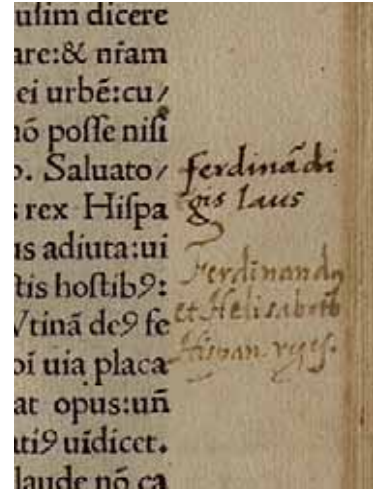 usim dicere
are:& nr̃am
ei urbẽ:cu/
nõ posse nisi
o. Saluato/
s rex Hispa
us adiuta:ui
stis hostibꝰ:
Vtinã deꝰ fe
oĩ uia placa
at opus:uñ
atiꝰ uidicet.
laude nõ ca
ferdinãdi
gis laus
Ferdinandꝰ
et Helisabetħ
Hispan. reges.